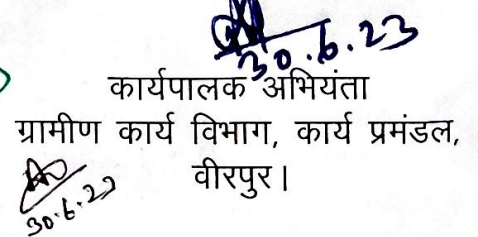 30.6.23
कार्यपालक अभियंता
ग्रामीण कार्य विभाग, कार्य प्रमंडल,
वीरपुर।
30.6.23